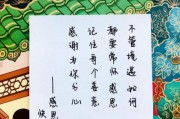 不管境遇如何
都要常怀感恩
记住有个善意
感谢为你分心
——感恩